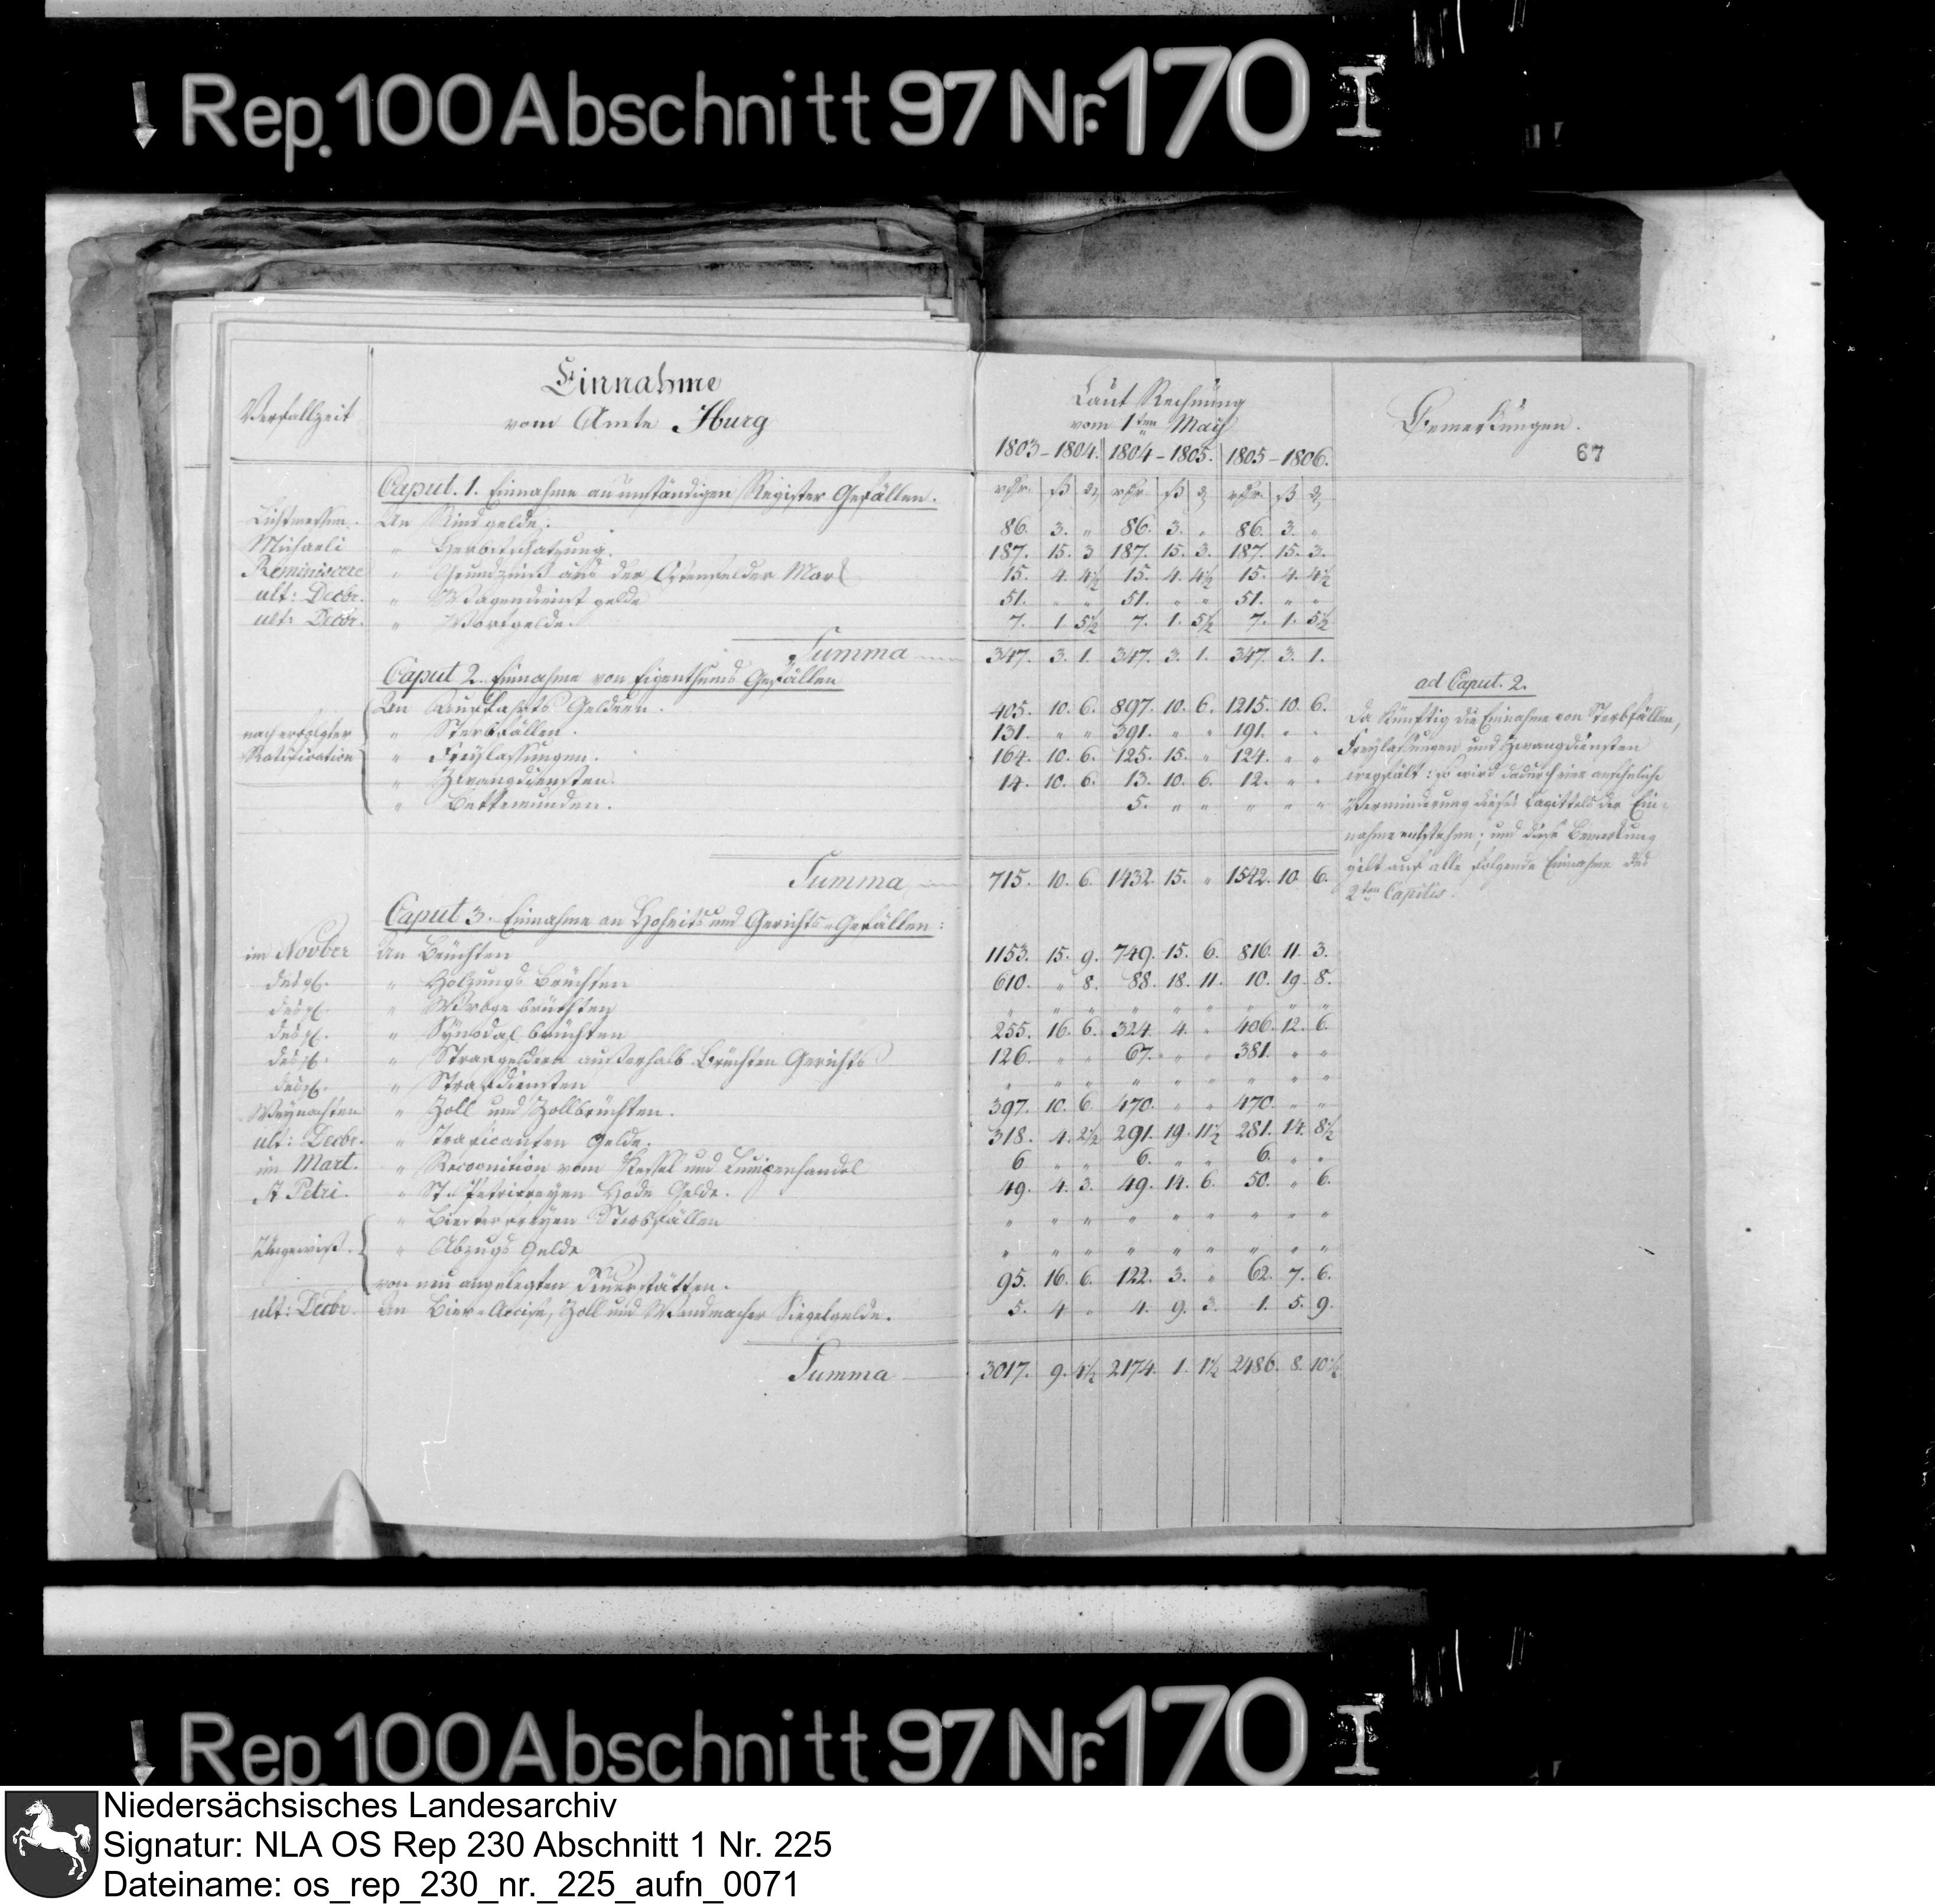 Rep. 100 Abschnitt 97 Nr. 170 I
Verfallzeit
Einnahme
vom Amte Iburg
Laut Rechnung
vom 1ten May
1803-1804. 1804-1805. 1805-1806.
Bemerkungen.
67
Caput. 1. Einnahme an unständigen Register Gefällen.
rthr. ß ₰ rthr. ß ₰ rthr. ß ₰
Lichtmessen. An Rindgelde. 86. 3. " 86. 3. " 86. 3. "
Michaeli " Herbstschatzung. 187. 15. 3 187. 15. 3. 187. 15. 3.
Reminiscere " Grundzins aus der Mark 15. 4. 4½ 15. 4. 4½ 15. 4. 4½
ult: Decbr. " Wagendienst gelde 51. " " 51. " " 51. " "
ult: Decbr. " Wortgelde. 7. 1 5½ 7. 1. 5½ 7. 1. 5½
Summa 347. 3. 1. 347. 3. 1. 347. 3. 1.
Caput 2. Einnahme von Eigenthums Gefällen
nach erfolgter
Ratification
An Auffahrts Geldern. 405. 10. 6. 897. 10. 6. 1215. 10. 6.
" Sterbfällen. 131. " " 391. " " 191. " "
" Freylassungen. 164. 10. 6. 125. 15. " 124. " "
" Zwangdiensten. 14. 10. 6. 13. 10. 6. 12. " "
" Bettemunden. 5. " " " " "
Summa 715. 10. 6. 1432. 15. " 1542. 10. 6.
ad Caput. 2.
Da künftig die Einnahme von Sterbfällen,
Freylassungen und Zwangdiensten
wegfält: so wird dadurch eine ansehnliche
Verminderung dieses Capittels der Ein-
nahme entstehen; und diese Bemerkung
gilt auf alle folgende Einnahme des
2ten Capitis.
Caput 3. Einnahme an Hoheits und Gerichts-Gefällen:
im Novber An Brüchten 1153. 15. 9. 749. 15. 6. 816. 11. 3.
desgl. " Holzungs Brüchten 610. " 8. 88. 18. 11. 10. 19. 8.
desgl. " Wroge brüchten " " " " " " " " "
desgl. " Synodal brüchten 255. 16. 6. 324. 4. " 406. 12. 6.
desgl. " Strafgeldern ausserhalb Brüchten Gerichts 126. " " 67. " " 381. " "
desgl. " Strafdiensten " " " " " " " " "
Weynachten " Zoll und Zollbrüchten. 397. 10. 6. 470. " " 470. " "
ult: Decbr. " Traficanten Gelde. 318. 4. 2½ 291. 19. 11½ 281. 14. 8½
im Mart. " Recognition vom Kessel und Lumpenhandel 6 " " 6. " " 6. " "
St Petri. " St. Petrifreyen Hode Gelde. 49. 4. 3. 49. 14. 6. 50. " 6.
" Biesterfreyen Sterbfällen " " " " " " " " "
Ungewiß. " Abzugs Gelde " " " " " " " " "
von neu angelegten Feuerstätten. 95. 16. 6. 122. 3. " 62. 7. 6.
ult: Decbr. An Bier-Accise, Zoll und Wandmacher Siegelgelde. 5. 4 " 4. 9. 3. 1. 5. 9.
Summa 3017. 9. 4½ 2174. 1. 1½ 2486. 8. 10½
Rep. 100 Abschnitt 97 Nr. 170 I
Niedersächsisches Landesarchiv
Signatur: NLA OS Rep 230 Abschnitt 1 Nr. 225
Dateiname: os_rep_230_nr._225_aufn_0071